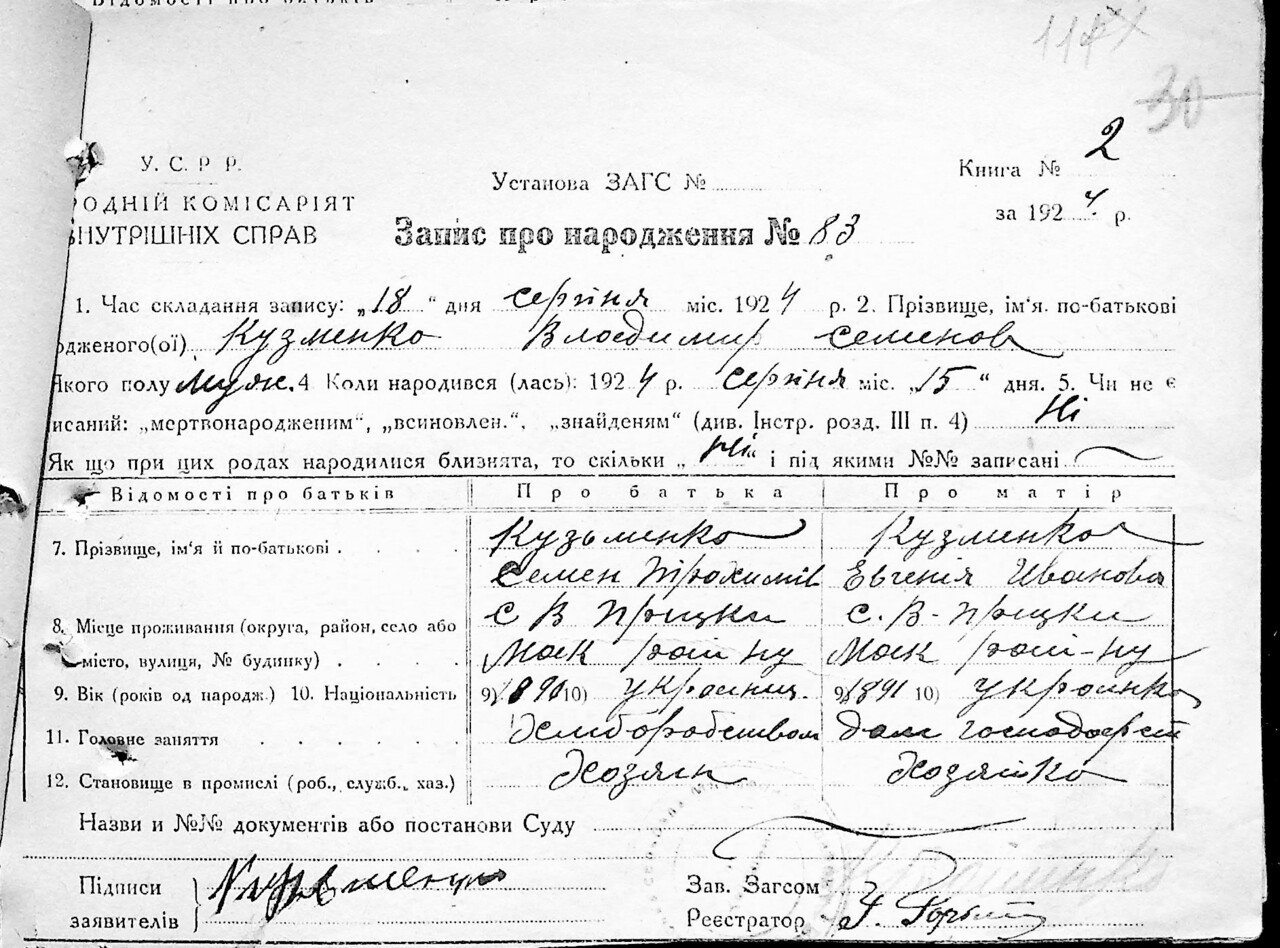 У. С. Р Р.
Установа ЗАГС №
Книга № 2
РОДНІЙ КОМІСАРІЯТ
за 1924 р.
ВНУТРІШНІХ СПРАВ
Запис про народження № 83
1. Час складання запису: „18“ дня серпня міс. 1924 р. 2. Прізвище, ім'я. по-батькові
одженого(ої) Кузменко Владимир Семенов
Якого полу муж. 4 Коли народився (лась): 1924 р. серпня міс. „15“ дня. 5. Чи не є
исаний: „мертвонародженим“, „всиновлен.“, „знайденям“ (див. Інстр. розд. III п. 4) Ні
Як що при цих родах народилися близнята, то скільки „Ні“ і під якими №№ записані
Відомості про батьків Про батька Про матір
7. Прізвище, ім'я й по-батькові Кузьменко Кузменко
Семен Трохимів Евгенія Иванова
8. Місце проживання (округа, район, село або с В Прицки с. В-Прицки
місто, вулиця, № будинку) Мок рай ну Мок рай-ну
9. Вік (років од народж.) 10. Національність 9) 1890 10) Українец 9) 1891 10) Українка
11. Головне заняття Хліборобством Дом господарст
12. Становище в промислі (роб., служб., хаз.) Хозяин Хозяйка
Назви и №№ документів або постанови Суду
Підписи Кузьменко
Зав. Загсом
заявителів
Реєстратор